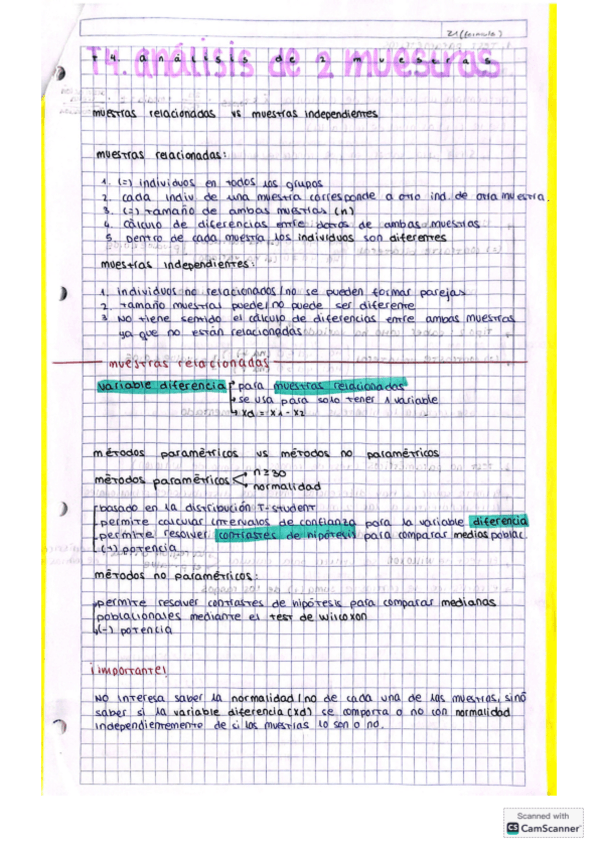 21 (fórmula)
T4. análisis de 2 muestras
muestras relacionadas vs muestras independientes
muestras relacionadas:
1. (=) individuos en todos los grupos
2. cada indiv de una muestra corresponde a otro ind. de otra muestra.
3. (=) tamaño de ambas muestras (n)
4. cálculo de diferencias entre datos de ambas muestras
5. dentro de cada muestra los individuos son diferentes
muestras independientes:
1. individuos no relacionados/no se pueden formar parejas
2. tamaño muestras puede/no puede ser diferente
3 No tiene sentido el cálculo de diferencias entre ambas muestras
ya que no están relacionadas
muestras relacionadas
variable diferencia para muestras relacionadas
se usa para solo tener 1 variable
xd = x1 - x2
métodos paramétricos vs métodos no paramétricos
métodos paramétricos < n≥30
normalidad
basado en la distribución T-student
permite calcular intervalos de confianza para la variable diferencia
permite resolver contrastes de hipótesis para comparar medias poblac.
(+) potencia
métodos no paramétricos:
permite resolver contrastes de hipótesis para comparar medianas
poblacionales mediante el test de wilcoxon
(-) potencia
¡importante!
No interesa saber la normalidad/no de cada una de las muestras, sinó
saber si la variable diferencia (xd) se comporta o no con normalidad
independientemente de si las muestras lo son o no.
Scanned with
CS CamScanner